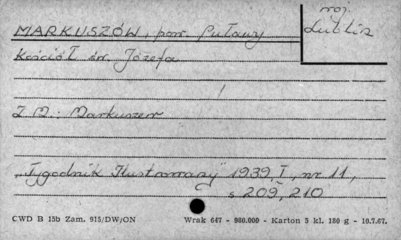 MARKUSZÓW, pow. Puławy
woj. Lublin
Kościół św. Józefa
Z M.: Markuszew
"Tygodnik Ilustrowany" 1939, I, nr 11,
s 209, 210
CWD B 15b Zam. 915/DW/ON Wrak 647 - 980.000 - Karton 5 kl. 180 g - 10.7.67.